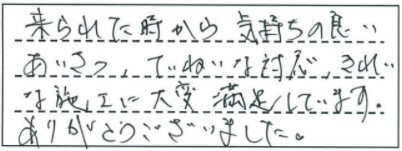 来られた時から気持ちの良い
あいさつ、ていねいな対応、きれい
な施工に大変満足しています。
ありがとうございました。